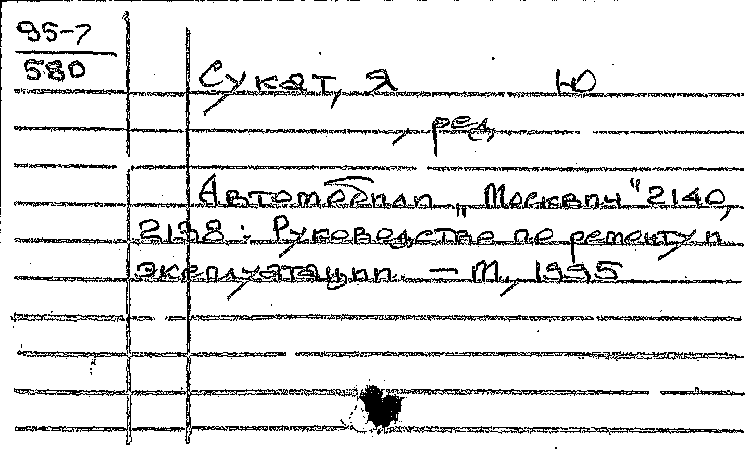 95-7
580
Сукат, Я Ю
, ред
Автомобили „Москвич" 2140,
2138: Руководство по ремонту и
эксплуатации. — М., 1995